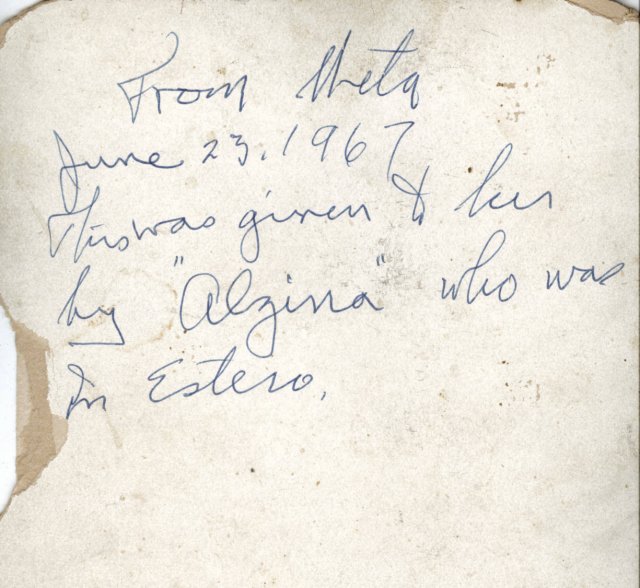 From Meta
June 23, 1967
This was given to her
by "Alzirra" who was
In Estero.